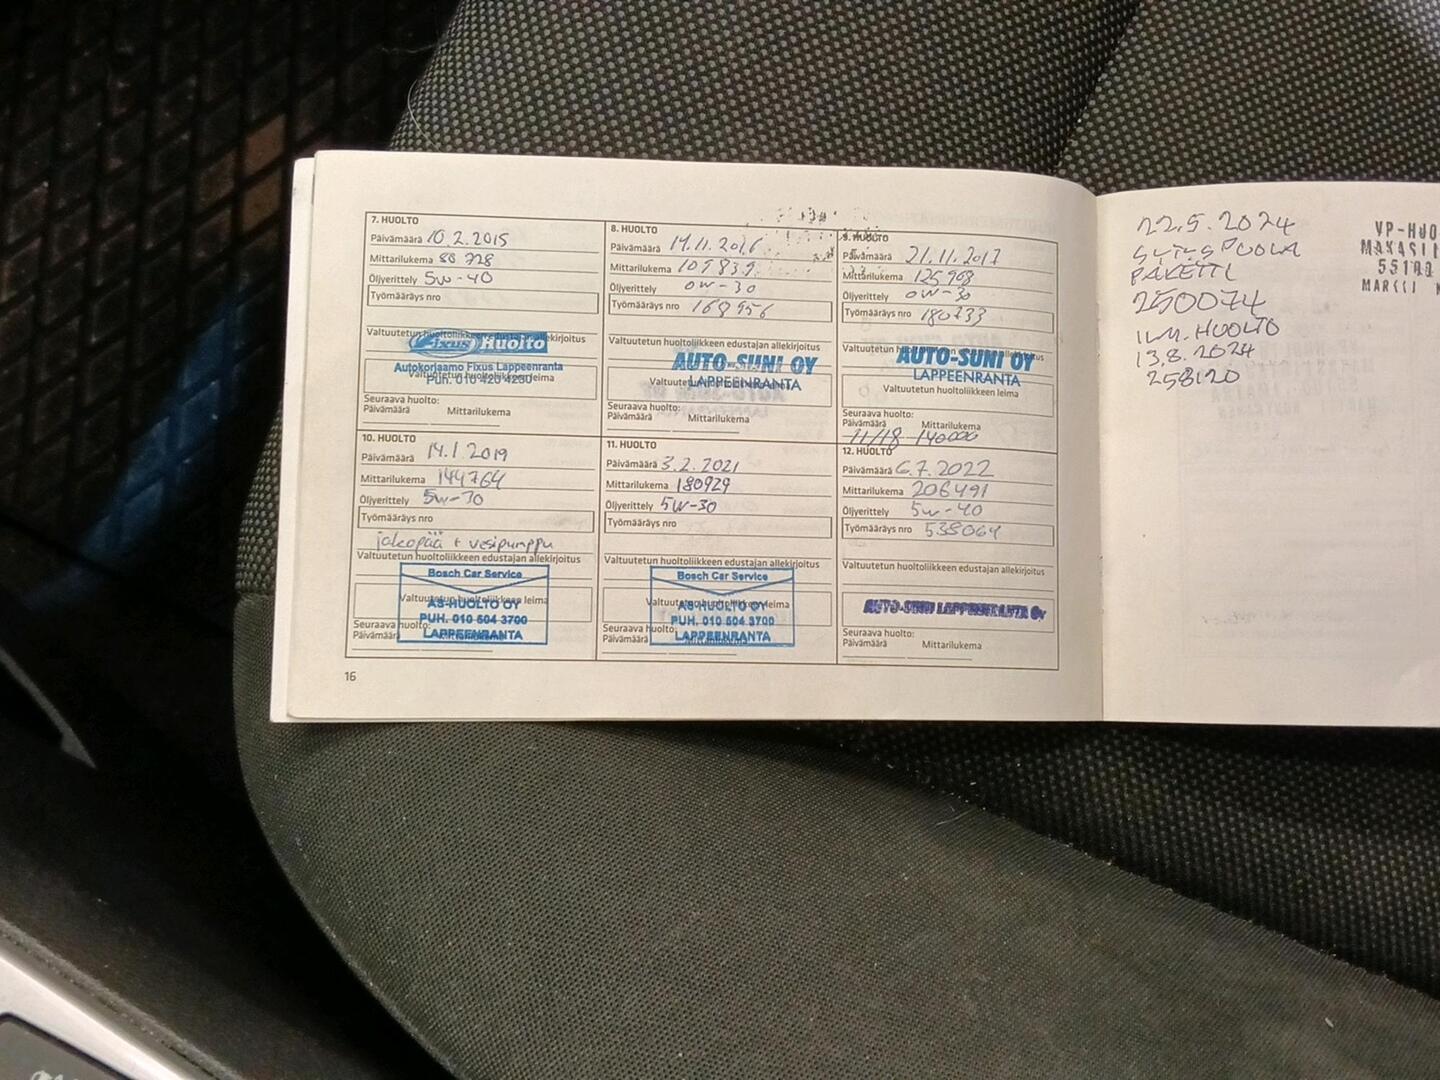 7. HUOLTO
Päivämäärä 10.2.2015
Mittarilukema 80 728
Öljyerittely 5w-40
Työmääräys nro
Valtuutetun huoltoliikkeen edustajan allekirjoitus
Fixus Huolto
Autokorjaamo Fixus Lappeenranta
Puh. 010 420 4230
Valtuutetun huoltoliikkeen leima
Seuraava huolto:
Päivämäärä Mittarilukema
8. HUOLTO
Päivämäärä 14.11.2016
Mittarilukema 109839
Öljyerittely 0w-30
Työmääräys nro 168956
Valtuutetun huoltoliikkeen edustajan allekirjoitus
AUTO-SUNI OY
LAPPEENRANTA
Valtuutetun huoltoliikkeen leima
Seuraava huolto:
Päivämäärä Mittarilukema
9. HUOLTO
Päivämäärä 21.11.2017
Mittarilukema 125968
Öljyerittely 0w-30
Työmääräys nro 180733
Valtuutetun huoltoliikkeen edustajan allekirjoitus
AUTO-SUNI OY
LAPPEENRANTA
Valtuutetun huoltoliikkeen leima
Seuraava huolto:
Päivämäärä Mittarilukema
11/18 140000
10. HUOLTO
Päivämäärä 14.1.2019
Mittarilukema 144764
Öljyerittely 5w-30
Työmääräys nro
jakopää + vesipumppu
Valtuutetun huoltoliikkeen edustajan allekirjoitus
Bosch Car Service
Valtuutetun huoltoliikkeen leima
AS-HUOLTO OY
PUH. 010 504 3700
LAPPEENRANTA
Seuraava huolto:
Päivämäärä Mittarilukema
11. HUOLTO
Päivämäärä 3.2.2021
Mittarilukema 180929
Öljyerittely 5W-30
Työmääräys nro
Valtuutetun huoltoliikkeen edustajan allekirjoitus
Bosch Car Service
Valtuutetun huoltoliikkeen leima
AS-HUOLTO OY
PUH. 010 504 3700
LAPPEENRANTA
Seuraava huolto:
Päivämäärä Mittarilukema
12. HUOLTO
Päivämäärä 6.7.2022
Mittarilukema 206491
Öljyerittely 5w-40
Työmääräys nro 538064
Valtuutetun huoltoliikkeen edustajan allekirjoitus
AUTO-SUNI LAPPEENRANTA OY
Seuraava huolto:
Päivämäärä Mittarilukema
16
22.5.2024
PAKETTI
250074
ILM. HUOLTO
13.8.2024
258120
VP-HUO
MAKASII
55100